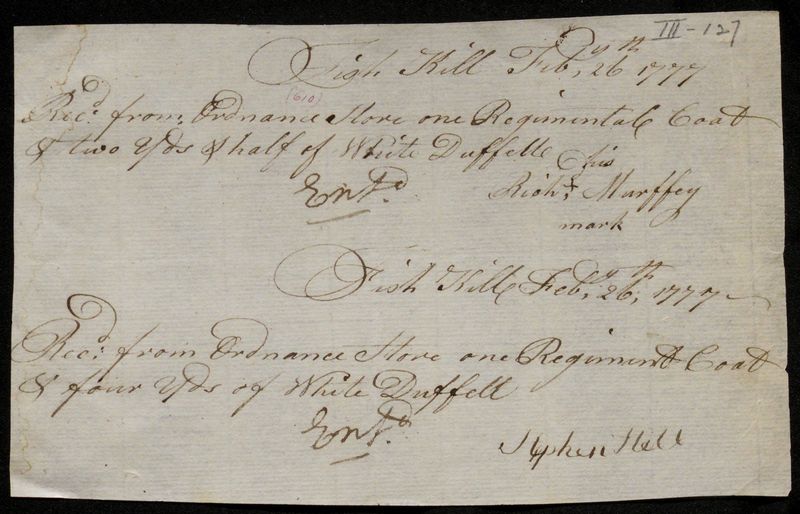 III-127
Fish Kill Feby, 26th 1777
(610)
Recd. from Ordnance Store one Regimentale Coat
& two Yds & half of White Duffelle
Entd.
his
Richd. + Murffey
mark
Fish Kill Feby, 26th, 1777
Recd. from Ordnance Store one Regiment Coat
& four Yds of White Duffell
Entd.
Stephen